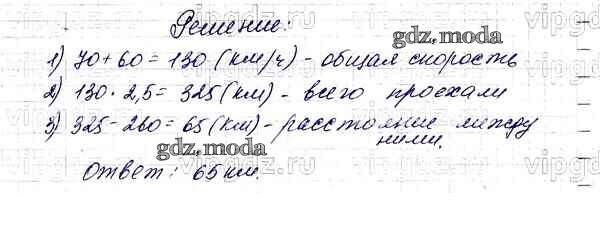 Решение:
1) 70 + 60 = 130 (км/ч) - общая скорость
2) 130 · 2,5 = 325 (км) - всего проехали
3) 325 - 260 = 65 (км) - расстояние между
ними.
Ответ: 65 км.
gdz.moda
gdz.moda
vipgdz
vipgdz
vipgdz
vipgdz